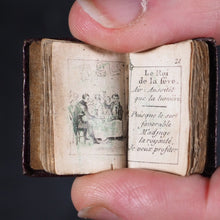 21
Le Roi
de la fève.
Air: Aussitôt
que la lumière
Puisque le sort
favorable
M'adjuge
la royauté,
Je veux profiter